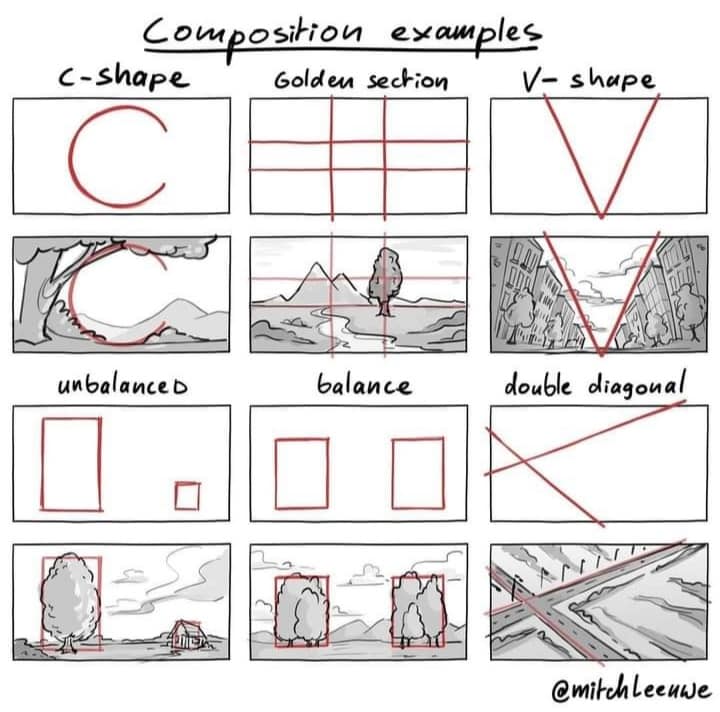 Composition examples
C-shape
Golden section
V- shape
unbalanced
balance
double diagonal
@mitchLeeuwe